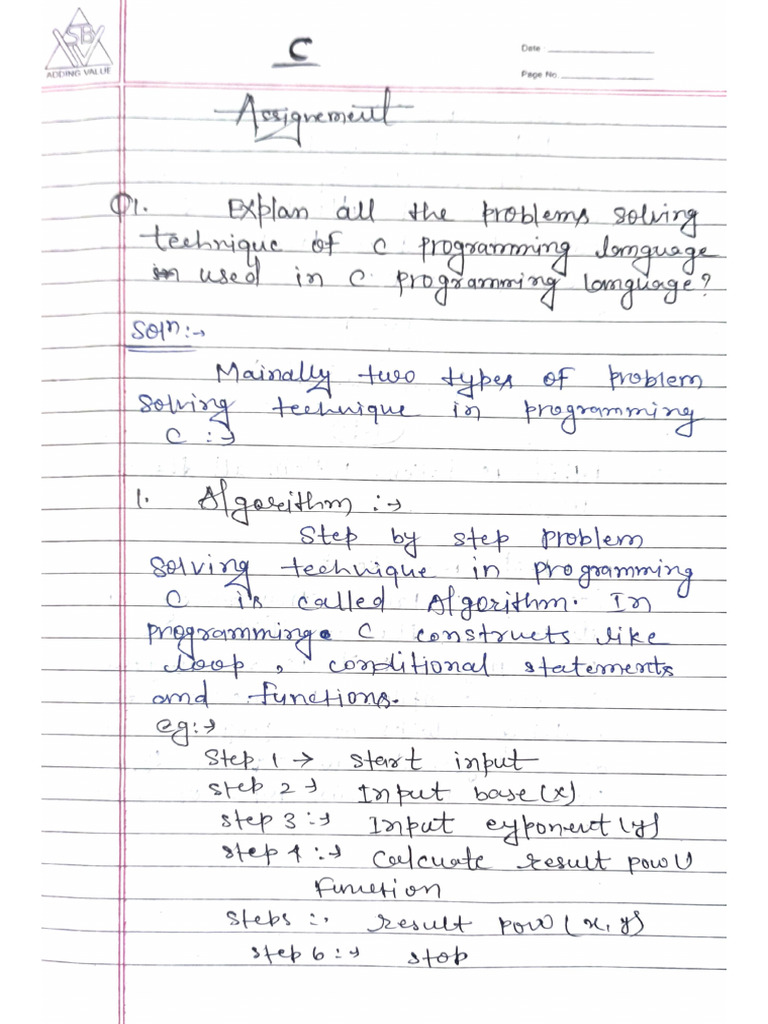 STBY
ADDING VALUE
C
Date :
Page No.
Assignement
Q1. Explan all the problems solving
technique of C programming language
in used in C programming language?
Soln:→
Mainally two types of problem
solving technique in programming
C :→
1. Algorithm :→
Step by step problem
solving technique in programming
C is called Algorithm. In
programming C constructs like
loop, conditional statements
and functions.
eg:→
Step 1 → start input
step 2 → Input base(x)
step 3 :→ Input exponent (y)
step 4 :→ Calcuate result pow()
function
step5 :→ result pow (x, y)
step 6 :→ stop